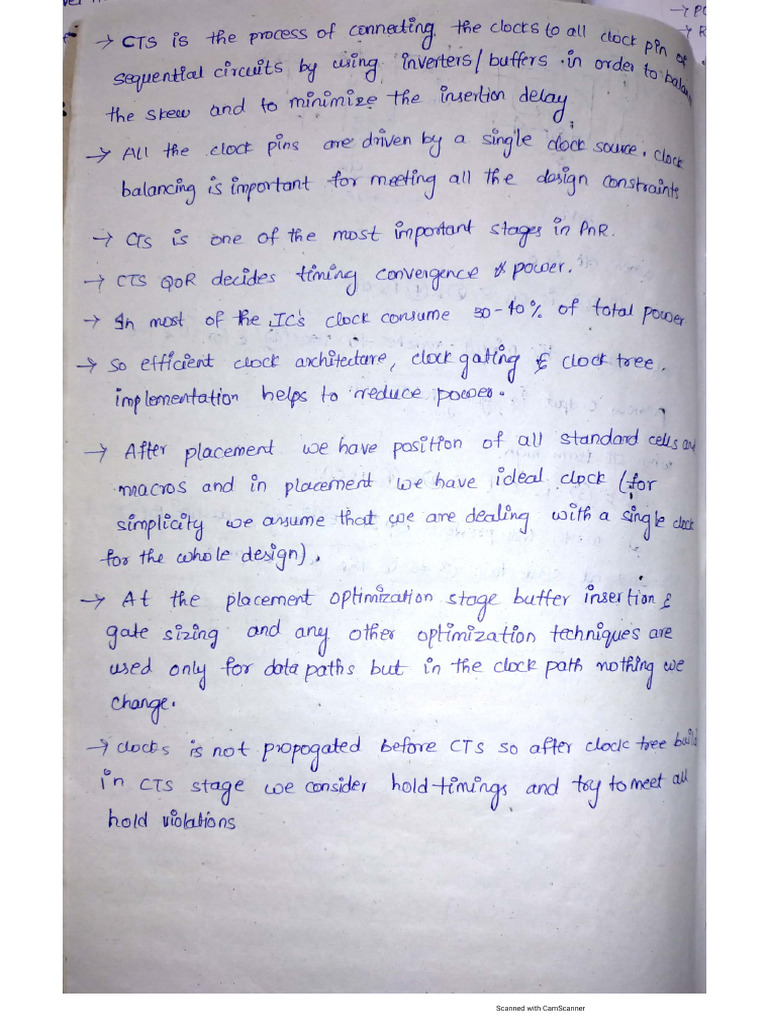 → PO
→ R
→ CTS is the process of connecting the clocks to all clock pin of
sequential circuits by using inverters/buffers in order to balan
the skew and to minimize the insertion delay
→ All the clock pins are driven by a single clock source. clock
balancing is important for meeting all the design constraints
→ CTS is one of the most important stages in PnR.
→ CTS QoR decides timing convergence & power.
→ In most of the IC's clock consume 30-40% of total power
→ So efficient clock architecture, clock gating & clock tree.
implementation helps to reduce power.
→ After placement we have position of all standard cells and
macros and in placement we have ideal clock (for
simplicity we assume that we are dealing with a single clock
for the whole design).
→ At the placement optimization stage buffer insertion &
gate sizing and any other optimization techniques are
used only for data paths but in the clock path nothing we
change.
→ clocks is not propogated before CTS so after clock tree build
in CTS stage we consider hold timings and try to meet all
hold violations
Scanned with CamScanner